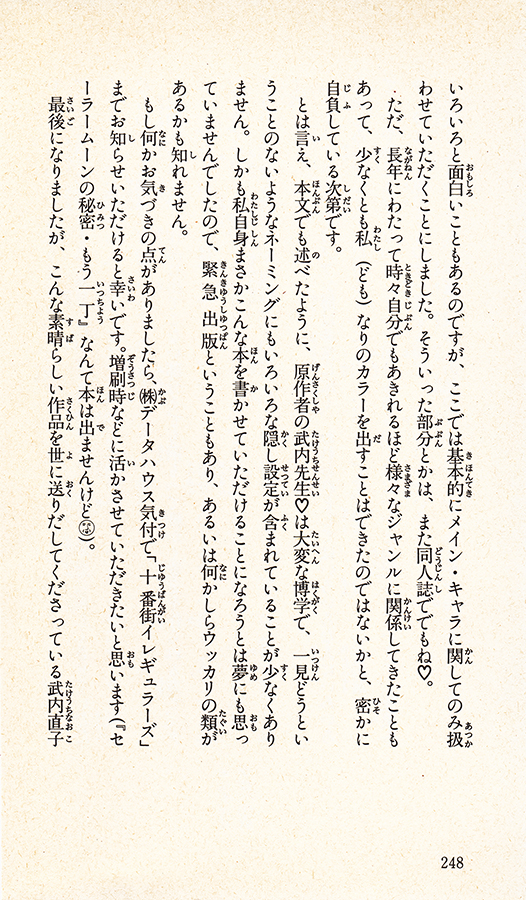 いろいろと面白いこともあるのですが、ここでは基本的にメイン・キャラに関してのみ扱
わせていただくことにしました。そういった部分とかは、また同人誌ででもね♡。
　ただ、長年にわたって時々自分でもあきれるほど様々なジャンルに関係してきたことも
あって、少なくとも私（ども）なりのカラーを出すことはできたのではないかと、密かに
自負している次第です。
　とは言え、本文でも述べたように、原作者の武内先生♡は大変な博学で、一見どうとい
うことのないようなネーミングにもいろいろな隠し設定が含まれていることが少なくあり
ません。しかも私自身まさかこんな本を書かせていただけることになろうとは夢にも思っ
ていませんでしたので、緊急出版ということもあり、あるいは何かしらウッカリの類が
あるかも知れません。
　もし何かお気づきの点がありましたら、㈱データハウス気付で「十番街イレギュラーズ」
までお知らせいただけると幸いです。増刷時などに活かさせていただきたいと思います（『セ
ーラームーンの秘密・もう一丁』なんて本は出ませんけど）。
　最後になりましたが、こんな素晴らしい作品を世に送りだしてくださっている武内直子
248